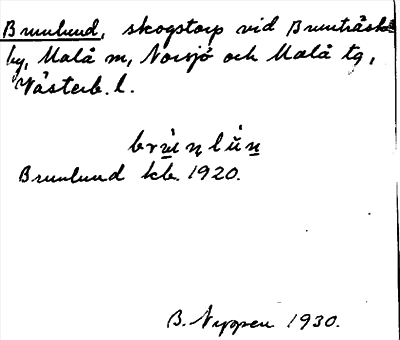 Brunlund, skogstorp vid Brunträsk
by, Malå m, Norsjö och Malå tg,
Västerb. l.
Brunlund kb. 1920.
1930.